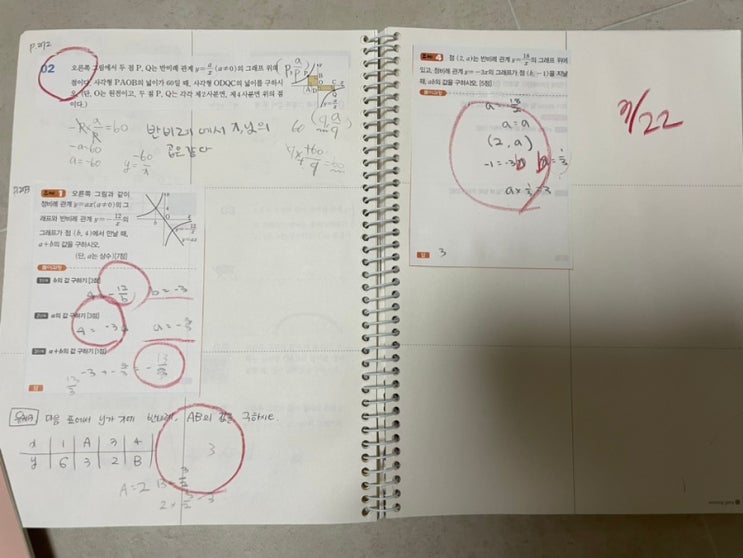 p.202
02
오른쪽 그림에서 두 점 P, Q는 반비례 관계 y=a/x (a≠0)의 그래프 위의
점이다. 사각형 PAOB의 넓이가 60일 때, 사각형 ODQC의 넓이를 구하시
오. (단, O는 원점이고, 두 점 P, Q는 각각 제2사분면, 제4사분면 위의 점
이다.)
=60
반비례에서 x, y의
곱은 같다
60
-a=60
a=-60
y=-60/x
1
오른쪽 그림과 같이
정비례 관계 y=ax(a≠0)의 그
래프와 반비례 관계 y=-12/x의
그래프가 점 (b, 4)에서 만날 때,
a+b의 값을 구하시오.
(단, a는 상수) [7점]
풀이과정
b의 값 구하기 [3점]
4=-12/b b=-3
a의 값 구하기 [3점]
4=-3a
a+b의 값 구하기 [1점]
답
다음 표에서 y가 x에 반비례, AB의 값을 구하시오.
x 1 A 3 4
y 6 3 2 B
3
A=2
4
점 (2, a)는 반비례 관계 y=18/x의 그래프 위에
있고, 정비례 관계 y=-3x의 그래프가 점 (b, -1)을 지날
때, ab의 값을 구하시오. [5점]
풀이과정
a=9
(2, a)
답 3